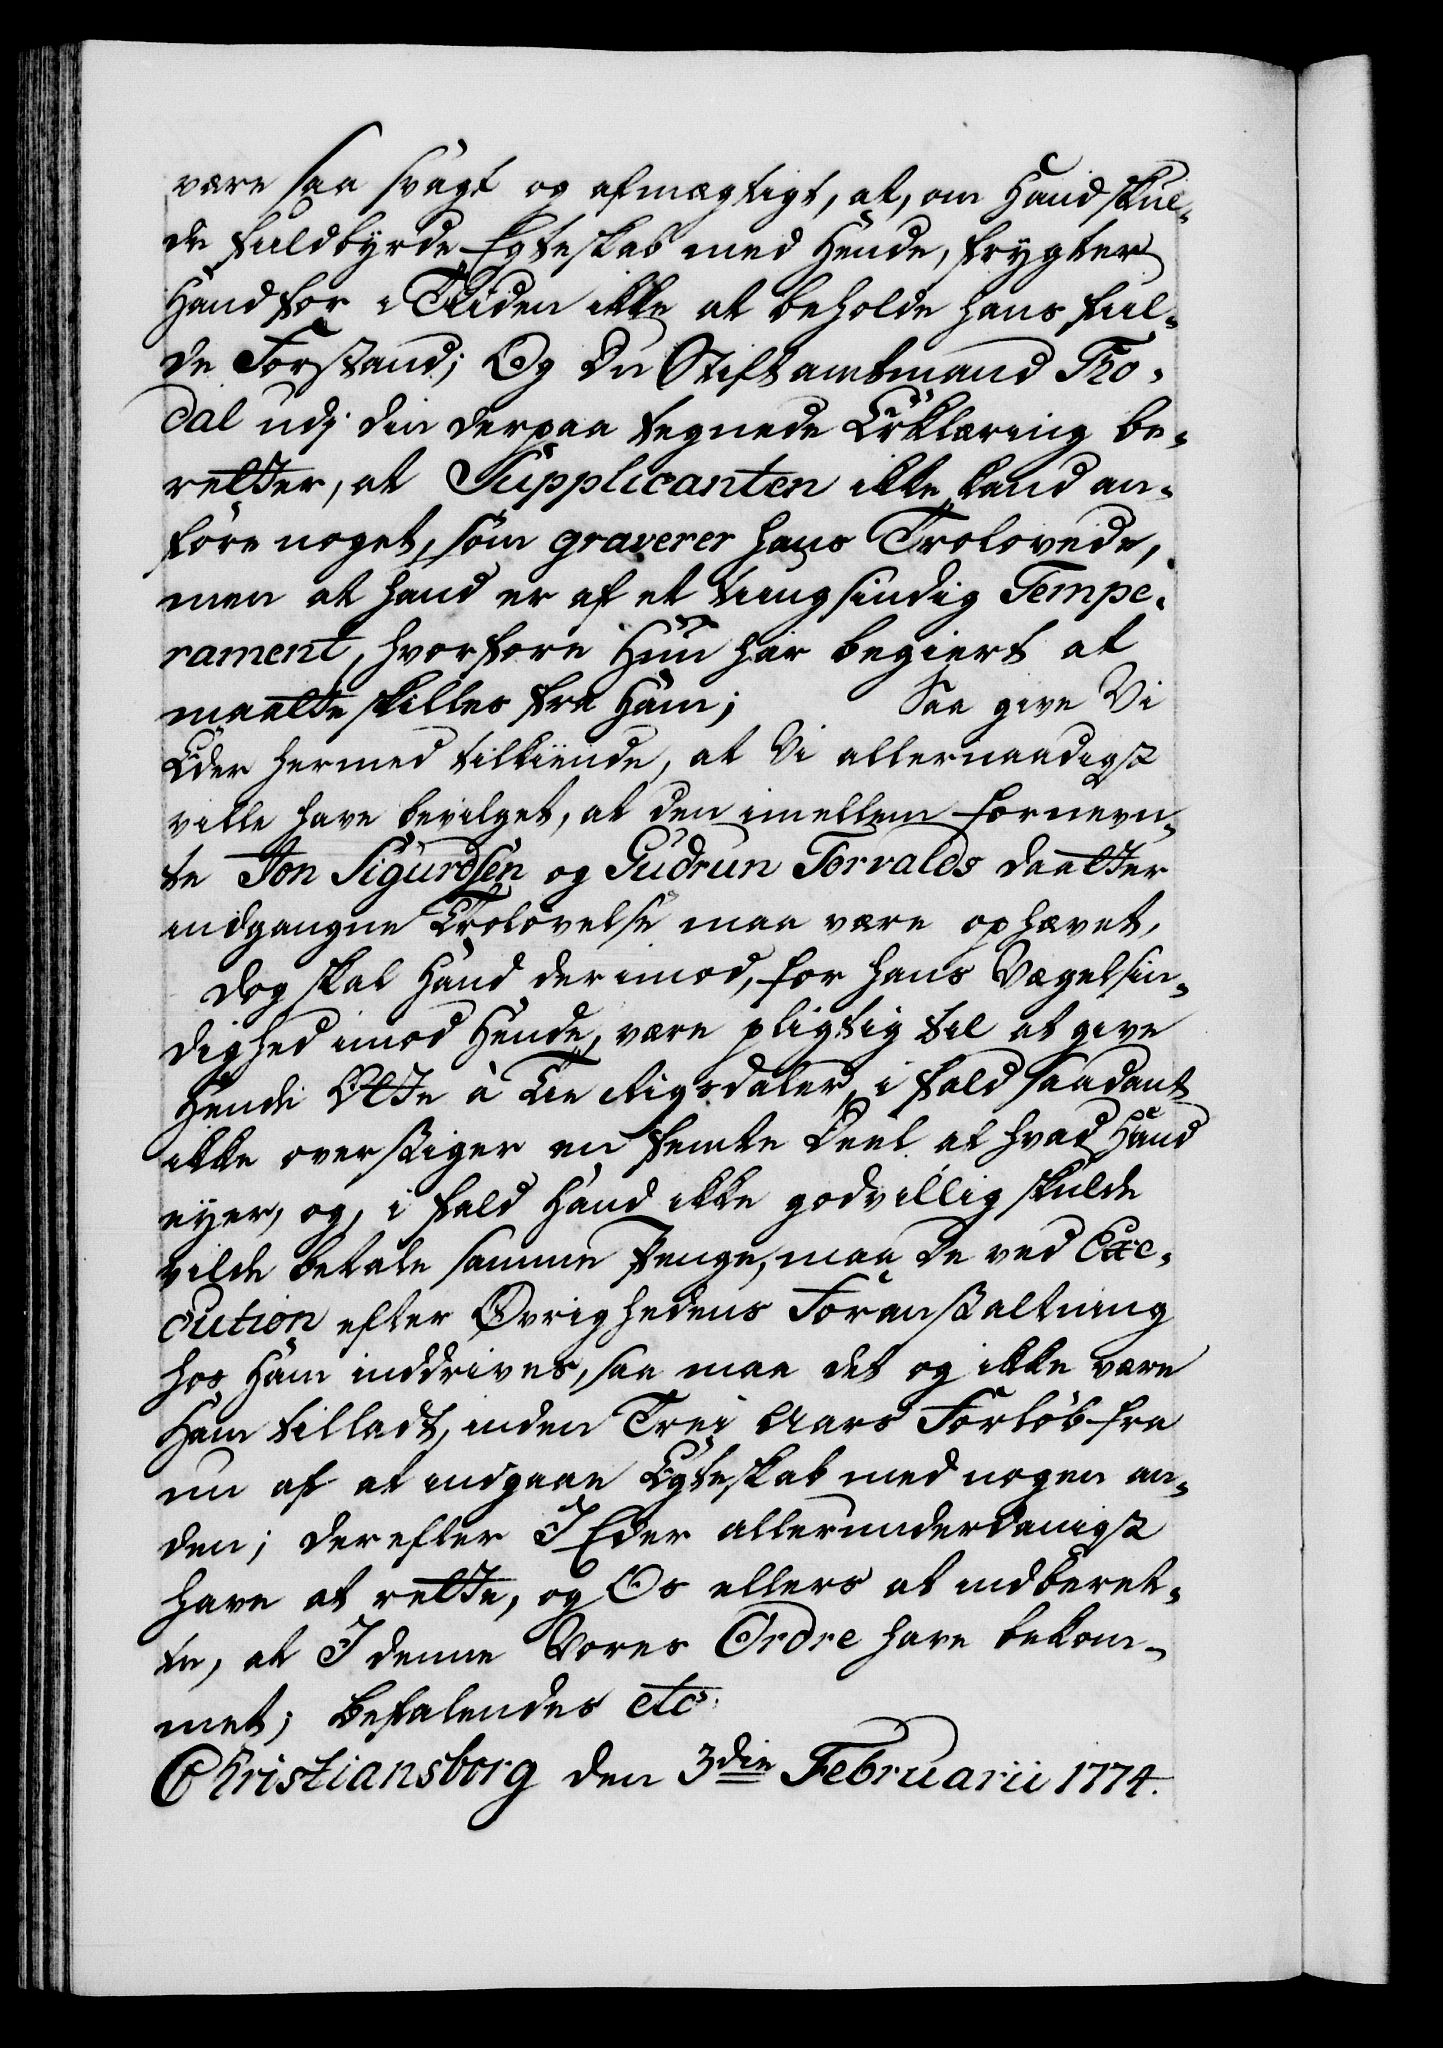 være saa svagt og afmægtigt, at, om Hand skul-
de fuldbyrde Egteskab med Hende, frygter
Hand for i Tiden ikke at beholde hans ful-
de Forstand; Og Du Stiftamtmand Tho-
dal udj din derpaa tegnede Erklæring be-
retter, at Supplicanten ikke kand an-
føre noget, som graverer hans Trolovede,
men at hand er af et tungsindig Tempe-
rament, hvorfore Hun har begiert at
maatte skilles fra Ham; Saa give Vi
Eder hermed tilkiende, at Vi allernaadigst
ville have bevilget, at den imellem fornevn-
te Jon Sigurdsen og Gudrun Torvalds daatter
indgangne Trolovelse maa være ophævet,
dog skal Hand derimod, for hans Vægelsin-
dighed imod Hende, være pligtig til at give
Hende Otte à Tie Rigsdaler, i fald saadant
ikke overstiger en femte Deel af hvad Hand
eyer, og, i fald Hand ikke godvillig skulde
vilde betale samme Penge, maa De ved Exe-
cution efter Øvrighedens Foranstaltning
hos Ham inddrives, saa maa det og ikke være
Ham tilladt, inden Trei Aars Forløb fra
nu af at indgaae Egteskab med nogen an-
den; Derefter I Eder allerunderdanigst
have at rette, og Os ellers at indberet-
te, at I denne Vores Ordre have bekom-
met; Befalendes etc.
Christiansborg den 3die Februarii 1774.